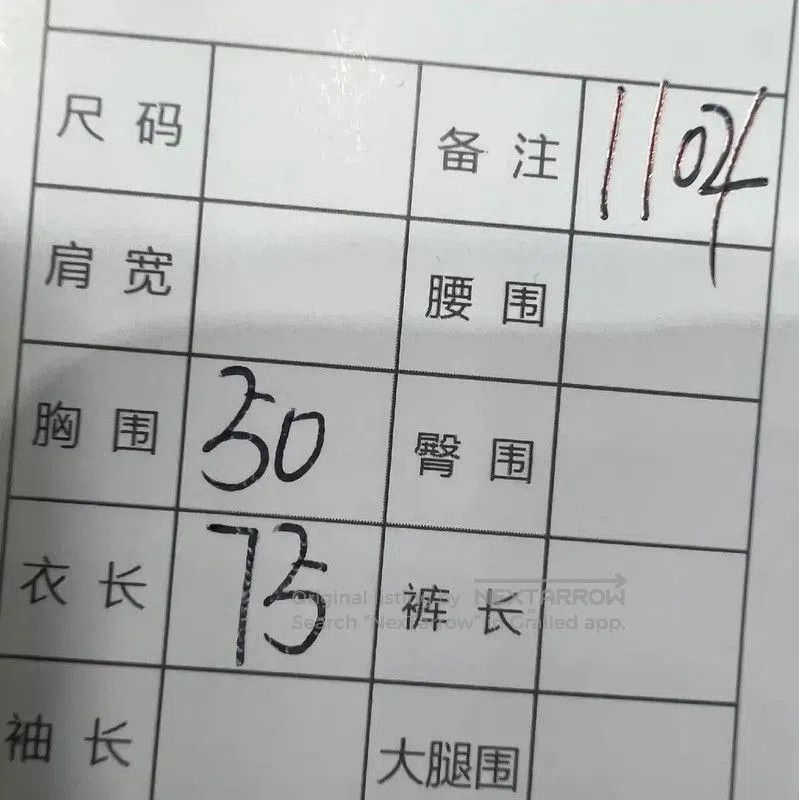 尺码 备注 1104
肩宽 腰围
胸围 50 臀围
衣长 75 裤长
Original listing by NEXTARROW
Search "Nextarrow" in Grailed app.
袖长 大腿围